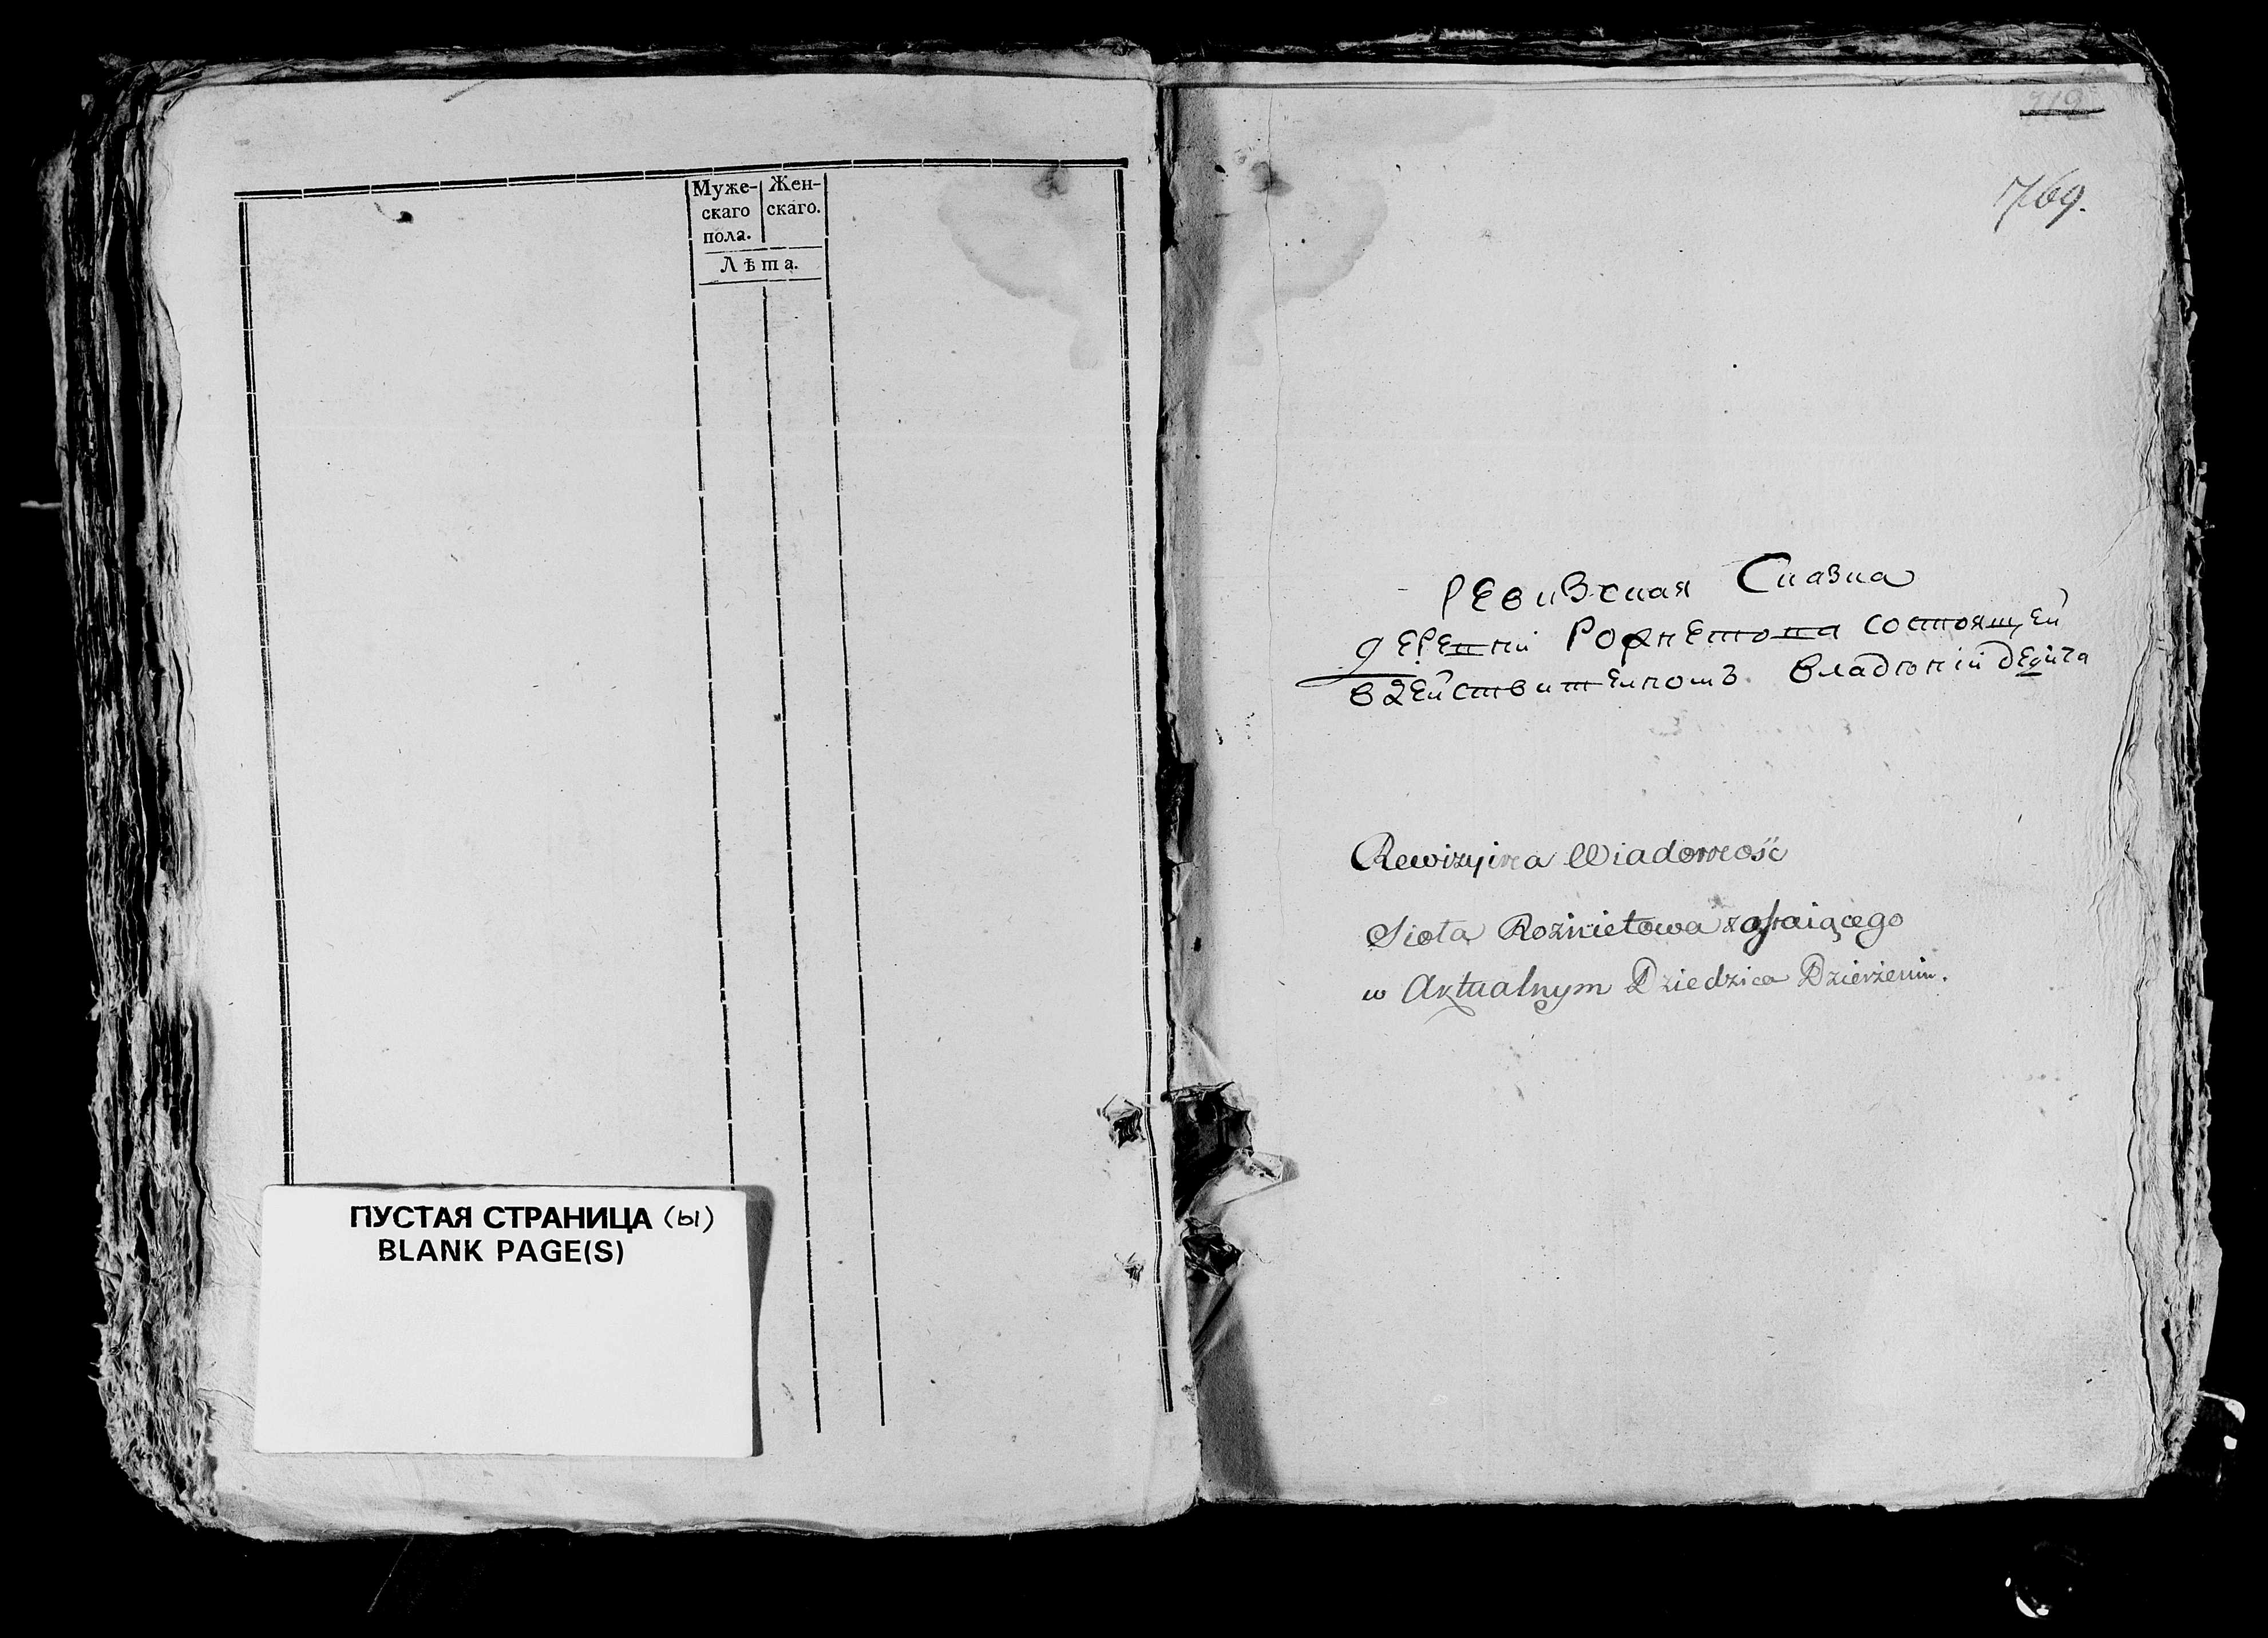 Муже- Жен-
скаго скаго.
пола.
Лѣта.
ПУСТАЯ СТРАНИЦА (Ы)
BLANK PAGE(S)
719
Ревизская Сказка
деревни Рожнетова состоящей
в действителномъ владюнiй дедича
Rewizyina Wiadomość
Sioła Roznietowa zostaiącego
w Aktualnym Dziedzica Dzierżeniu.